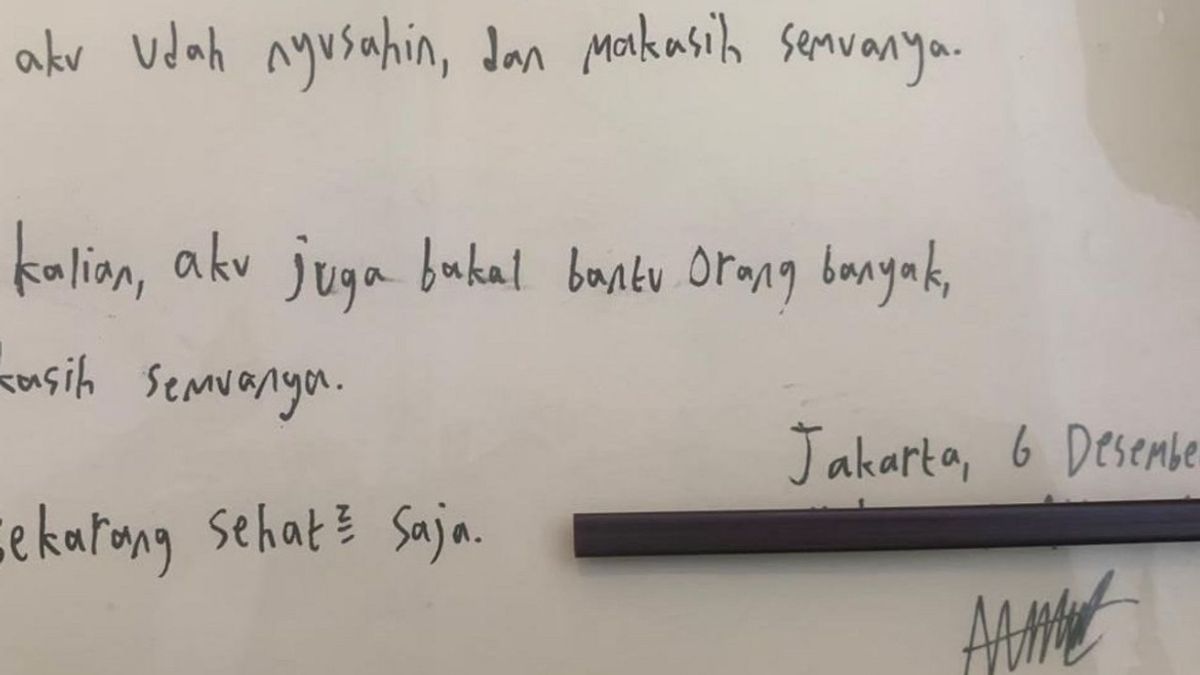 aku udah nyusahin, dan makasih semuanya.
kalian, aku juga bakal bantu orang banyak,
kasih semuanya.
Jakarta, 6 Desembe
sekarang sehat² saja.